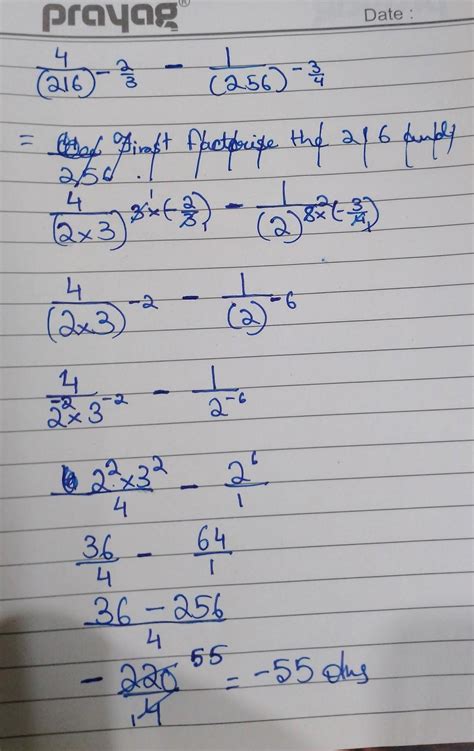 prayag® Date :
4/(216)^-2/3 - 1/(256)^-3/4
= first factorise the 216 and
256.
4/(2×3)^3×(-2/3) - 1/(2)^8×(-3/4)
4/(2×3)^-2 - 1/(2)^-6
4/2^-2×3^-2 - 1/2^-6
2^2×3^2/4 - 2^6/1
36/4 - 64/1
36 - 256/4
- 220/4 55 = -55 ans